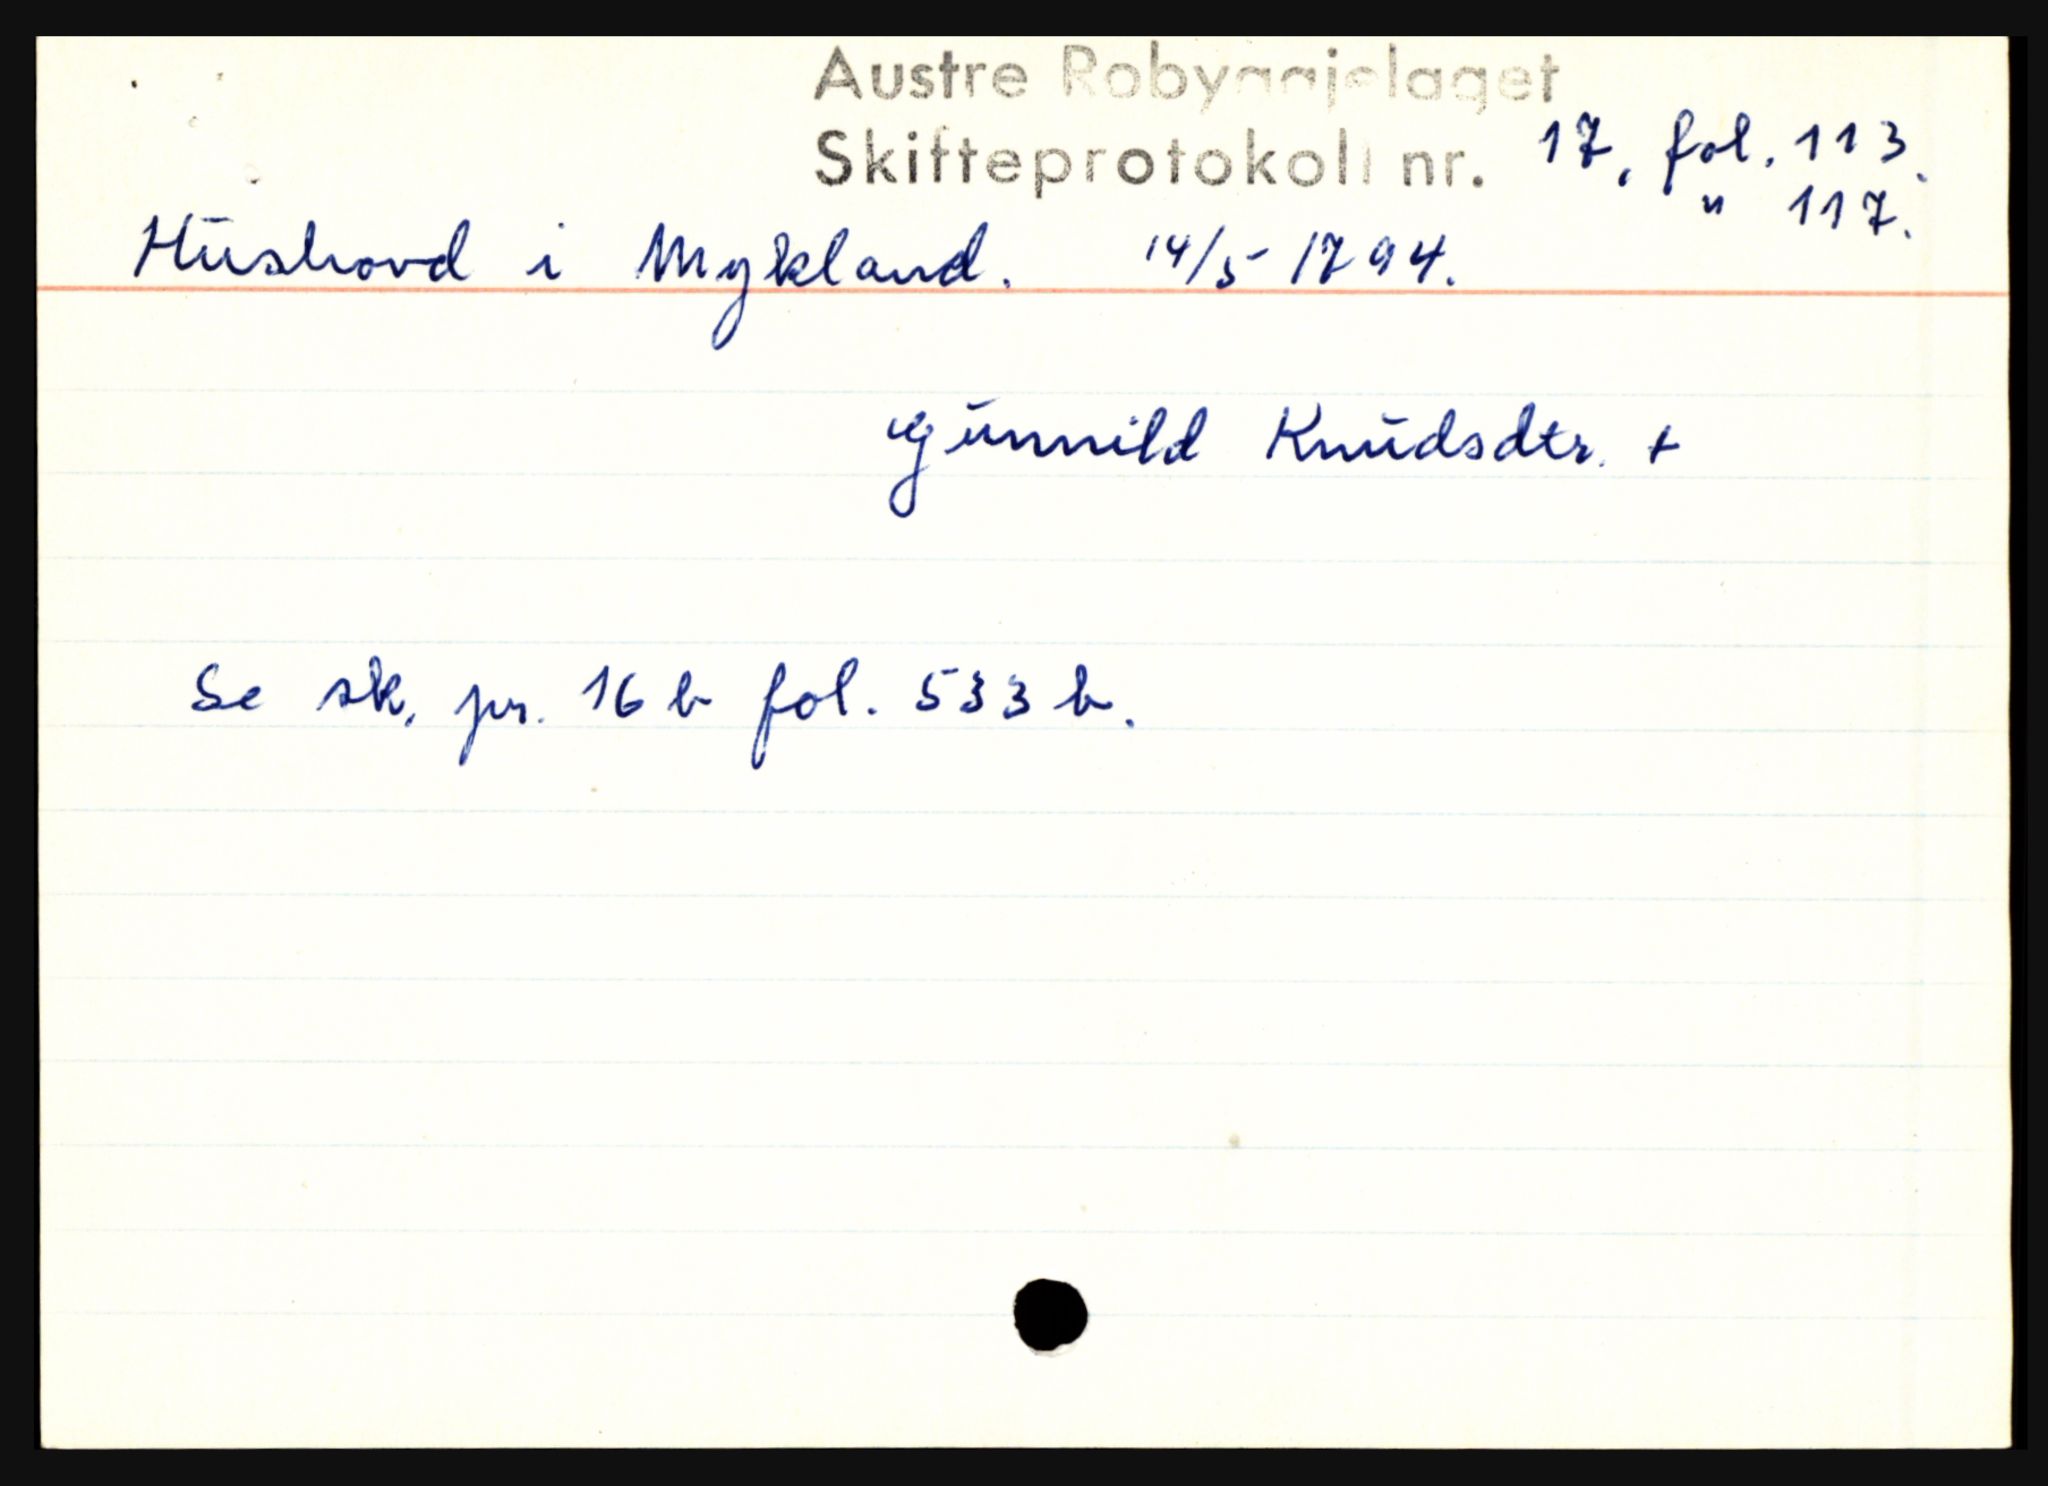 Austre Robyggjelaget
Skifteprotokoll nr. 17, fol. 113.
" 117.
Hushovd i Mykland. 14/5 1794.
Gunnild Knudsdtr. +
Se sk. pr. 16 b fol. 533 b.